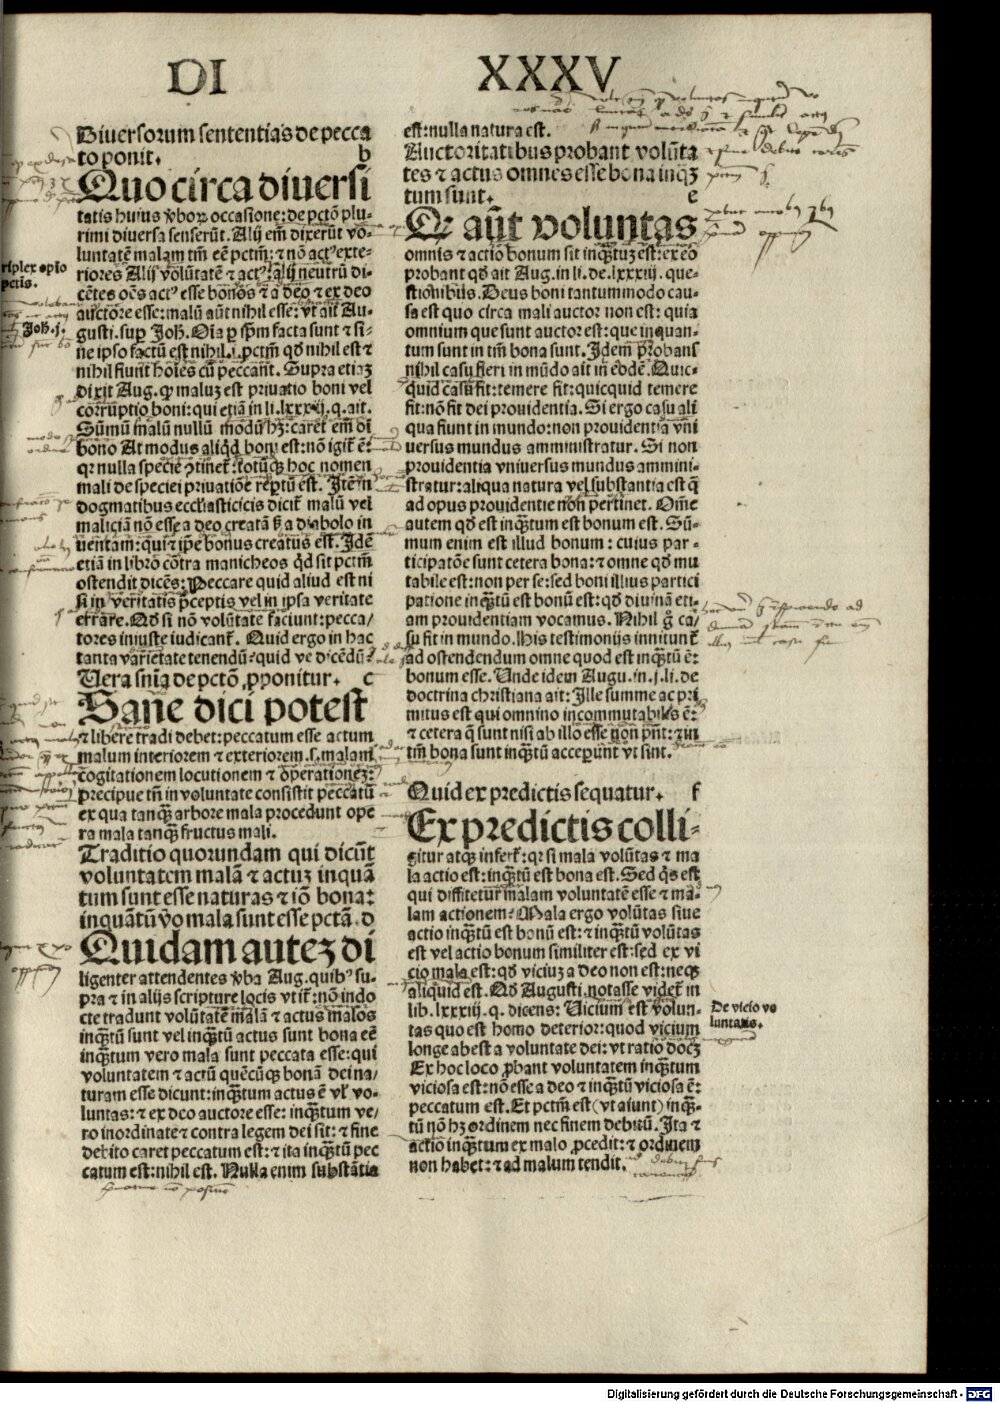 DI XXXV
Diuersorum sententias de pecca
to ponit. b
Quo circa diuersi
tatis huius v̉boꝝ occasione: de pctō plu-
rimi diuersa senserūt. Alij em̄ dixerūt vo-
luntatē malam tm̄ eē pctm̄: ⁊ nō actꝰ exte-
riores Alij volūtatē ⁊ actꝰ: alij neutrū di-
cētes oēs actꝰ esse bonos ⁊ a deo ⁊ ex deo
auctore esse: malū aūt nihil esse: vt ait Au-
gusti. suꝑ Joh̄. Oīa ꝑ ip̄m facta sunt ⁊ si-
ne ipso factū est nihil .i. pctm̄ qd̄ nihil est ⁊
nihil fiunt hoīes cū peccant. Supra etiaꝫ
dixit Aug. ꝙ maluꝫ est priuatio boni vel
corruptio boni: qui etiā in li. lxxxiij. q. ait.
Sūmū malū nullū modū hꝫ: caret em̄ oī
bono At modus aliqd̄ boni est: nō igit̄ ē:
qꝛ nulla specie ↄtinet̄: totūqꝫ hoc nomen
mali de speciei priuatiōe reptū est. Itē in
dogmatibus ecclesticicis dicit̄ malū vel
maliciā nō esse a deo creatā s̄ a diabolo in
uentam: qui ⁊ ip̄e bonus creatus est. Idē
etiā in libro cōtra manicheos qd̄ sit pctm̄
ostendit dicēs: Peccare quid aliud est ni
si in veritatis p̄ceptis vel in ipsa veritate
errare. Qd̄ si nō volūtate faciunt: pecca/
tores iniuste iudicant̄. Quid ergo in hac
tanta varietate tenendū: quid ve dicēdū?
Uera sn̄ia de pctō ꝓponitur. c
Sane dici potest
⁊ libere tradi debet: peccatum esse actum
malum interiorem ⁊ exteriorem .s. malam
cogitationem locutionem ⁊ operationeꝫ:
precipue tn̄ in voluntate consistit peccatū
ex qua tanqꝫ arbore mala procedunt ope
ra mala tanqꝫ fructus mali.
Traditio quorundam qui dicūt
voluntatem malā ⁊ actuꝫ inquā
tum sunt esse naturas ⁊ iō bona:
inquātū v̉o mala sunt esse pctā. d
Quidam auteꝫ di
ligenter attendentes v̉ba Aug. quibꝰ su-
pra ⁊ in alijs scripture locis vtit̄: nō indo
cte tradunt volūtatē malā ⁊ actus malos
inqꝫtū sunt vel inqꝫtū actus sunt bona eē
inqꝫtum vero mala sunt peccata esse: qui
voluntatem ⁊ actū quēcūqꝫ bonā dei na/
turam esse dicunt: inqꝫtum actus ē vl̓ vo-
luntas: ⁊ ex deo auctore esse: inqꝫtum ve/
ro inordinate ⁊ contra legem dei sit: ⁊ fine
debito caret peccatum est: ⁊ ita inqꝫtū pec
catum est: nihil est. Nulla enim substātia
est: nulla natura est.
Auctoritatibus probant volūta
tes ⁊ actus omnes esse bona inqꝫ
tum sunt. e
Qꝛ aūt voluntas
omnis ⁊ actio bonum sit inqꝫtuꝫ est: ex eo
probant qd̄ ait Aug. in li. de .lxxxiij. que-
stionibus. Deus boni tantummodo cau-
sa est quo circa mali auctor non est: quia
omnium que sunt auctor est: que inquan-
tum sunt in tm̄ bona sunt. Idem probans
nihil casu fieri in mūdo ait in eodē. Quic-
quid casu fit: temere fit: quicquid temere
fit: nō fit dei prouidentia. Si ergo casu ali
qua fiunt in mundo: non prouidentia vni
uersus mundus amministratur. Si non
prouidentia vniuersus mundus ammini-
stratur: aliqua natura vel substantia est q̄
ad opus prouidentie non pertinet. Om̄e
autem qd̄ est inqꝫtum est bonum est. Sū-
mum enim est illud bonum: cuius par-
ticipatōe sunt cetera bona: ⁊ omne qd̄ mu
tabile est: non per se: sed boni illius partici
patione inqꝫtū est bonū est: qd̄ diuinā eti-
am prouidentiam vocamus. Nihil g̊ ca/
su fit in mundo. His testimonijs innitunt̄
ad ostendendum omne quod est inqꝫtū ē:
bonum esse. Unde idem Augu. in .j. li. de
doctrina christiana ait: Ille summe ac pri
mitus est qui omnino incommutabilis ē:
⁊ cetera q̄ sunt nisi ab illo esse non pn̄t: ⁊ in
tm̄ bona sunt inqꝫtū acceperunt vt sint.
Quid ex predictis sequatur. f
Ex predictis colli-
gitur atqꝫ infert̄: qꝛ si mala volūtas ⁊ ma
la actio est: inqꝫtū est bona est. Sed q̄s est
qui diffitetur malam voluntatē esse ⁊ ma-
lam actionem? Mala ergo volūtas siue
actio inqꝫtū est bonū est: ⁊ inqꝫtū volūtas
est vel actio bonum similiter est: sed ex vi
cio mala est: qd̄ viciuꝫ a deo non est: neqꝫ
aliquid est. Qd̄ Augusti. notasse videt̄ in
lib. lxxxiij. q. dicens: Uicium est volun-
tas quo est homo deterior: quod vicium
longe abest a voluntate dei: vt ratio doceꝫ
Ex hoc loco ꝓbant voluntatem inqꝫtum
viciosa est: nō esse a deo ⁊ inqꝫtū viciosa ē:
peccatum est. Et pctm̄ est (vt aiunt) inqꝫ-
tū nō hꝫ ordinem nec finem debitū. Ita ⁊
actio inqꝫtum ex malo ꝓcedit: ⁊ ordinem
non habet: ⁊ ad malum tendit.
riplex opīo
pctis.
Joh̄. j.
De vicio vo
luntatis.
Digitalisierung gefördert durch die Deutsche Forschungsgemeinschaft - DFG